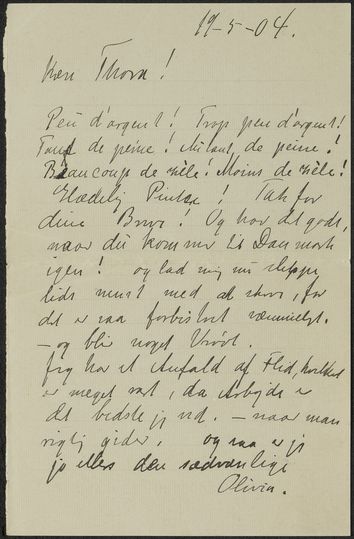 19-5-04.
Kære Thora!
Peu d'argent! Trop peu d'argent!
Tant de peine! Autant de peine!
Beaucoup de zèle! Moins de zèle!
Hædelig Pintse! Tak for
dine Breve! Og hav det godt,
naar du kommer til Danmark
igen! og lad mig nu slippe
lidt nemt med at skrive, for
det er saa forbistret væmmeligt.
– og blir noget Vrøvl.
Jeg har et Anfald af Flid, hvilket
er meget rart, da Arbejde er
det bedste jeg ved. – naar man
rigtig gider. og saa er jeg
jo ellers den sædvanlige
Olivia.